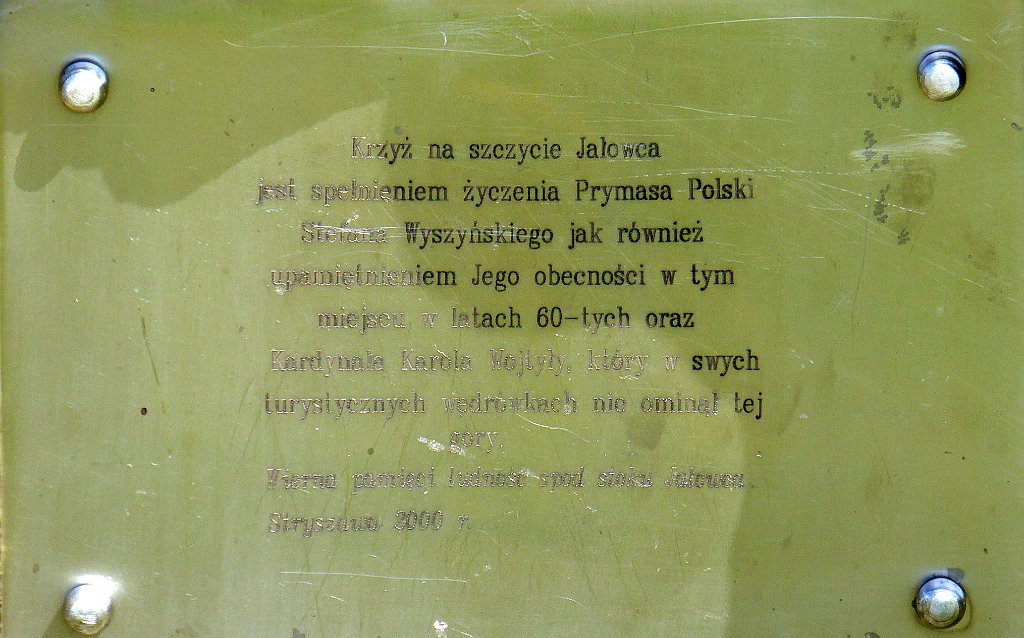 Krzyż na szczycie Jałowca
jest spełnieniem życzenia Prymasa Polski
Stefana Wyszyńskiego jak również
upamiętnieniem Jego obecności w tym
miejscu w latach 60-tych oraz
Kardynała Karola Wojtyły, który w swych
turystycznych wędrówkach nie ominął tej
góry.
Wierna pamięci ludność spod stoku Jałowca.
Stryszawa 2000 r.